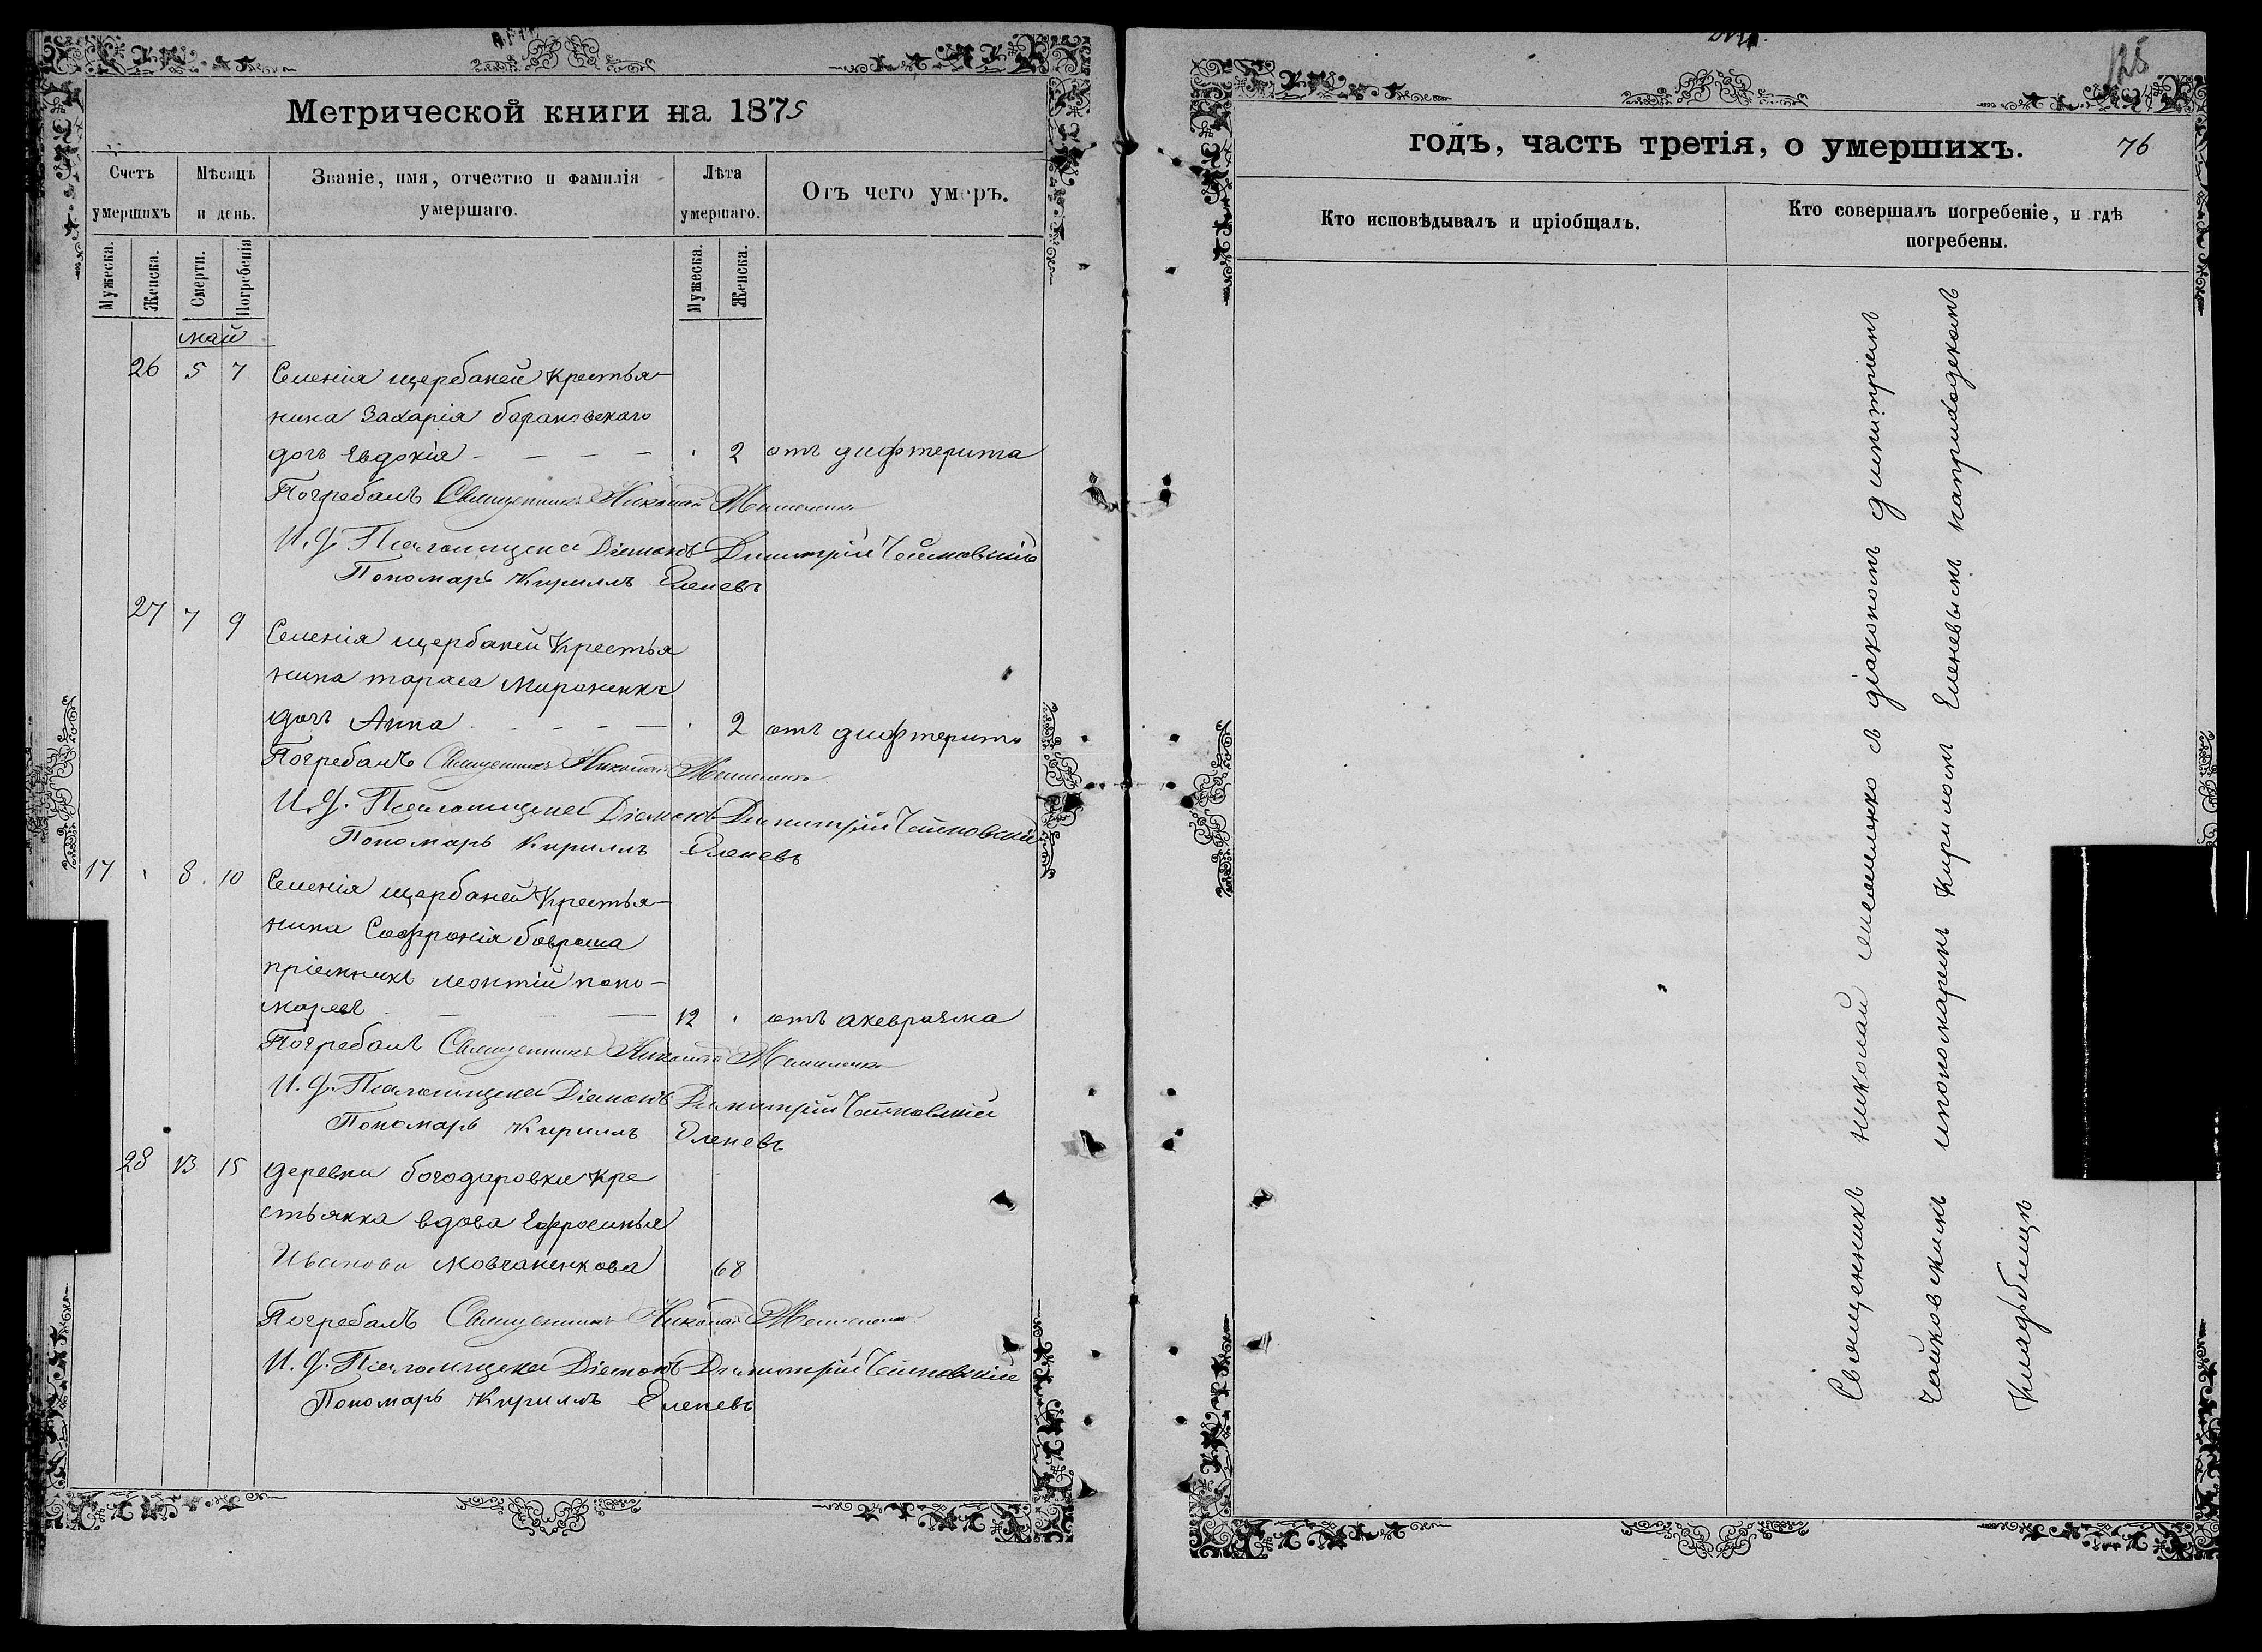 Метрической книги на 1875
Счетъ умершихъ
Мѣсяцъ и день.
Званіе, имя, отчество и фамилія умершаго.
Лѣта умершаго.
Отъ чего умеръ.
Мужеска.
Женска.
Смерти.
Погребенія
Мужеска.
Женска.
май
26 5 7 Селенія щербаней Крестья-
нина Захарія барановскаго
дочь Евдокія - - - - 2 отъ дифтерита
Погребалъ Священникъ Николай
И. Д. Псаломщика Діаконъ Димитрій Чайковскій
Пономарь Кириллъ Еленевъ
27 7 9 Селенія щербаней Крестья
нина тараса Мироненка
дочь Анна - - - 2 отъ дифтерита
Погребалъ Священникъ Николай
И. Д. Псаломщика Діаконъ Димитрій Чайковскій
Пономарь Кириллъ Еленевъ
17 8 10 Селенія щербаней Крестья-
нина Софронія бавраша
пріемникъ леонтій поно-
маревъ - - - 12 отъ
Погребалъ Священникъ Николай
И. Д. Псаломщика Діаконъ Димитрій Чайковскій
Пономарь Кириллъ Еленевъ
28 13 15 деревни богодаровки Кре
стьянка вдова Ефросинья
Иванова мовчаненкова 68
Погребалъ Священникъ Николай
И. Д. Псаломщика Діаконъ Димитрій Чайковскій
Пономарь Кириллъ Еленевъ
126
годъ, часть третія, о умершихъ. 76
Кто исповѣдывалъ и пріобщалъ.
Кто совершалъ погребеніе, и гдѣ погребены.
Священникъ николай с діакономъ димитріемъ
Чайковскимъ ипономаремъ Кириломъ Еленевымъ наприходскомъ
Кладбищѣ